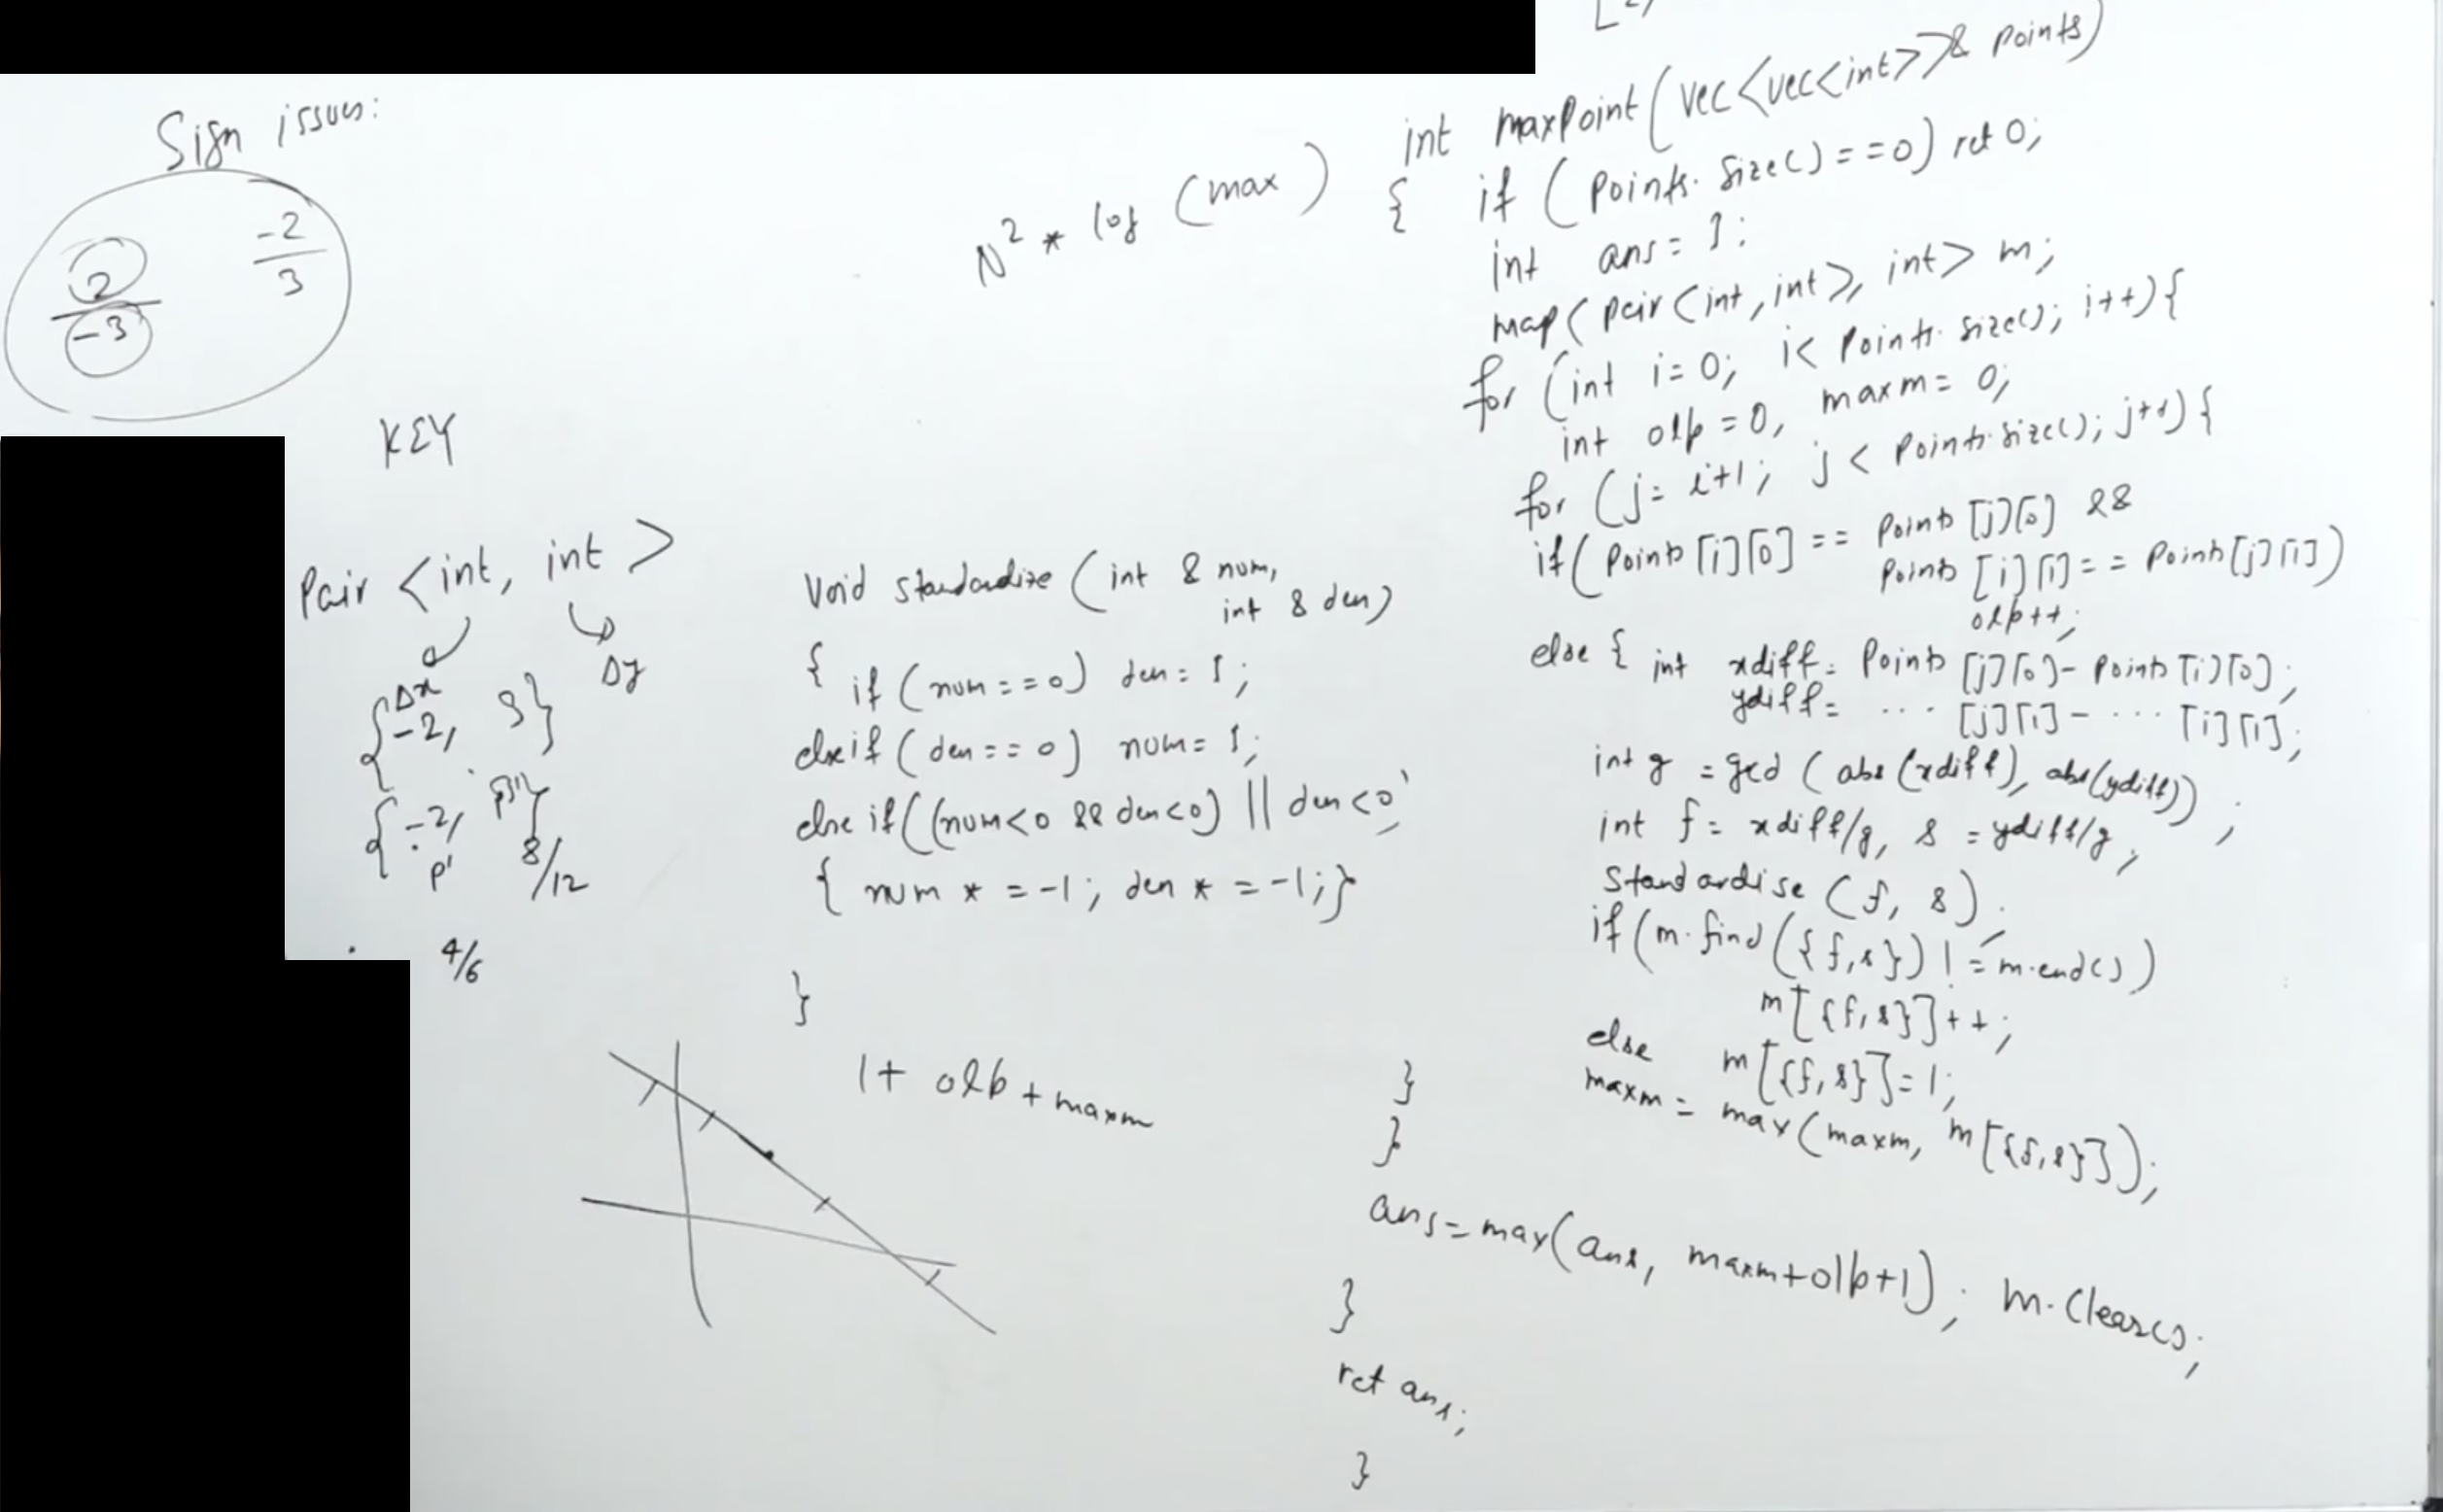 Sign issues:
2
-3
-2
3
KEY
Pair <int, int >
Δx
Δy
{-2, 3}
{-2,
p'
8/12
4/6
N² * log (max)
Void standardize (int & num,
int & den)
{ if (num == 0) den = 1;
else if (den == 0) num = 1;
else if ((num<0 && den<0) || den<0)
{ num * = -1; den * = -1;}
}
1 + olp + maxm
int maxPoint (vec<vec<int>>& points)
{ if (points.size() == 0) ret 0;
int ans = 1;
map<pair<int, int>, int> m;
for (int i = 0; i < points.size(); i++) {
int olp = 0, maxm = 0;
for (j = i+1; j < points.size(); j++) {
if (points [i][0] == points [j][0] &&
points [i][1] == points [j][1])
olp++;
else { int xdiff = points [j][0] - points [i][0];
ydiff = ... [j][1] - ... [i][1];
int g = gcd (abs (xdiff), abs(ydiff));
int f = xdiff/g, s = ydiff/g;
Standardise (f, s);
if (m.find ({f,s}) != m.end())
m[{f,s}]++;
else m[{f,s}] = 1;
maxm = max(maxm, m[{f,s}]);
}
}
ans = max(ans, maxm+olp+1); m.clear();
}
ret ans;
}